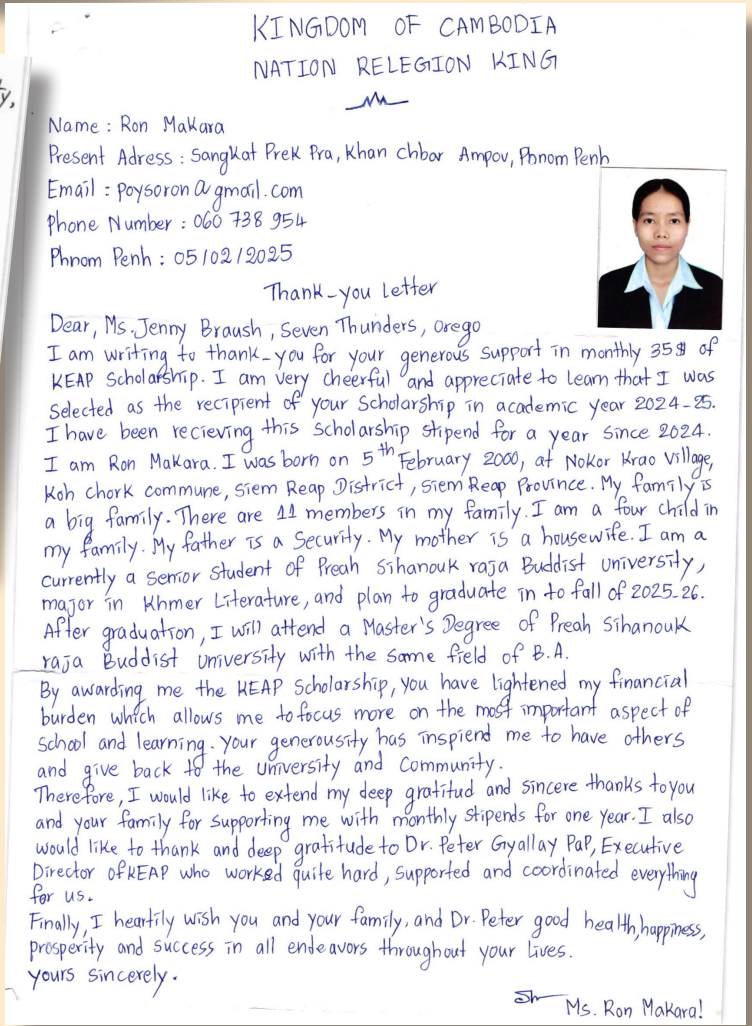 ty,
KINGDOM OF CAMBODIA
NATION RELEGION KING
Name : Ron Makara
Present Adress : Sangkat Prek Pra, Khan Chbar Ampov, Phnom Penh
Email : poysoron@gmail.com
Phone Number : 060 738 954
Phnom Penh : 05/02/2025
Thank-you Letter
Dear, Ms. Jenny Braush, Seven Thunders, Orego
I am writing to thank-you for your generous support in monthly 35$ of
KEAP Scholarship. I am very cheerful and appreciate to learn that I was
Selected as the recipient of your Scholarship in academic year 2024-25.
I have been recieving this Scholarship stipend for a year since 2024.
I am Ron Makara. I was born on 5th February 2000, at Nokor Krao Village,
Koh chork commune, Siem Reap District, Siem Reap Province. My family is
a big family. There are 11 members in my family. I am a four child in
my family. My father is a Security. My mother is a housewife. I am a
currently a Senior student of Preah Sihanouk raja Buddist University,
major in Khmer Literature, and plan to graduate in to fall of 2025-26.
After graduation, I will attend a Master's Degree of Preah Sihanouk
raja Buddist University with the same field of B.A.
By awarding me the KEAP Scholarship, you have lightened my financial
burden which allows me to focus more on the most important aspect of
School and learning. Your generousity has inspiend me to have others
and give back to the University and Community.
Therefore, I would like to extend my deep gratitud and sincere thanks to you
and your family for supporting me with monthly stipends for one year. I also
would like to thank and deep gratitude to Dr. Peter Gyallay Pap, Executive
Director of KEAP who worked quite hard, supported and coordinated everything
for us.
Finally, I heartily wish you and your family, and Dr. Peter good health, happiness,
prosperity and success in all endeavors throughout your lives.
yours sincerely.
Ms. Ron Makara!